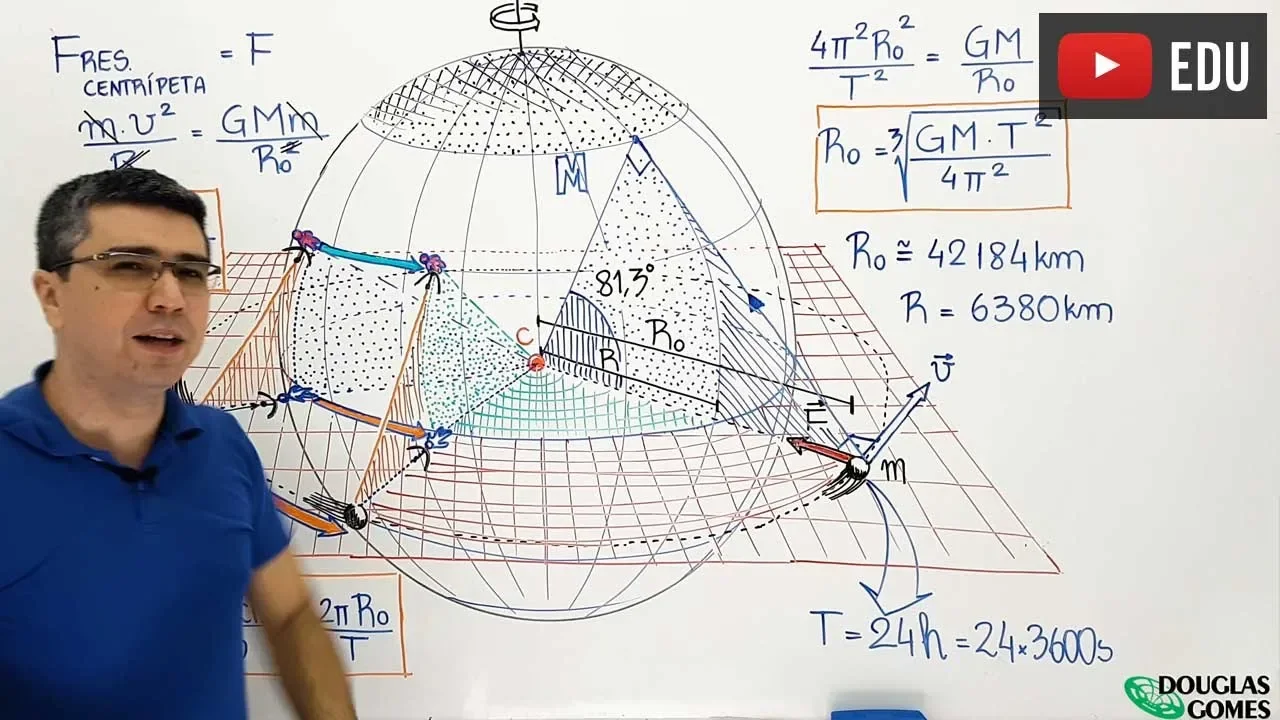 F RES. CENTRÍPETA = F
m·v²/R = GMm/R₀²
4π²R₀²/T² = GM/R₀
EDU
R₀ = ∛(GM·T²/4π²)
R₀ ≅ 42184km
R = 6380km
M
81,3°
C
R₀
R
F⃗
v⃗
m
2πR₀/T
T = 24h = 24×3600s
DOUGLAS
GOMES